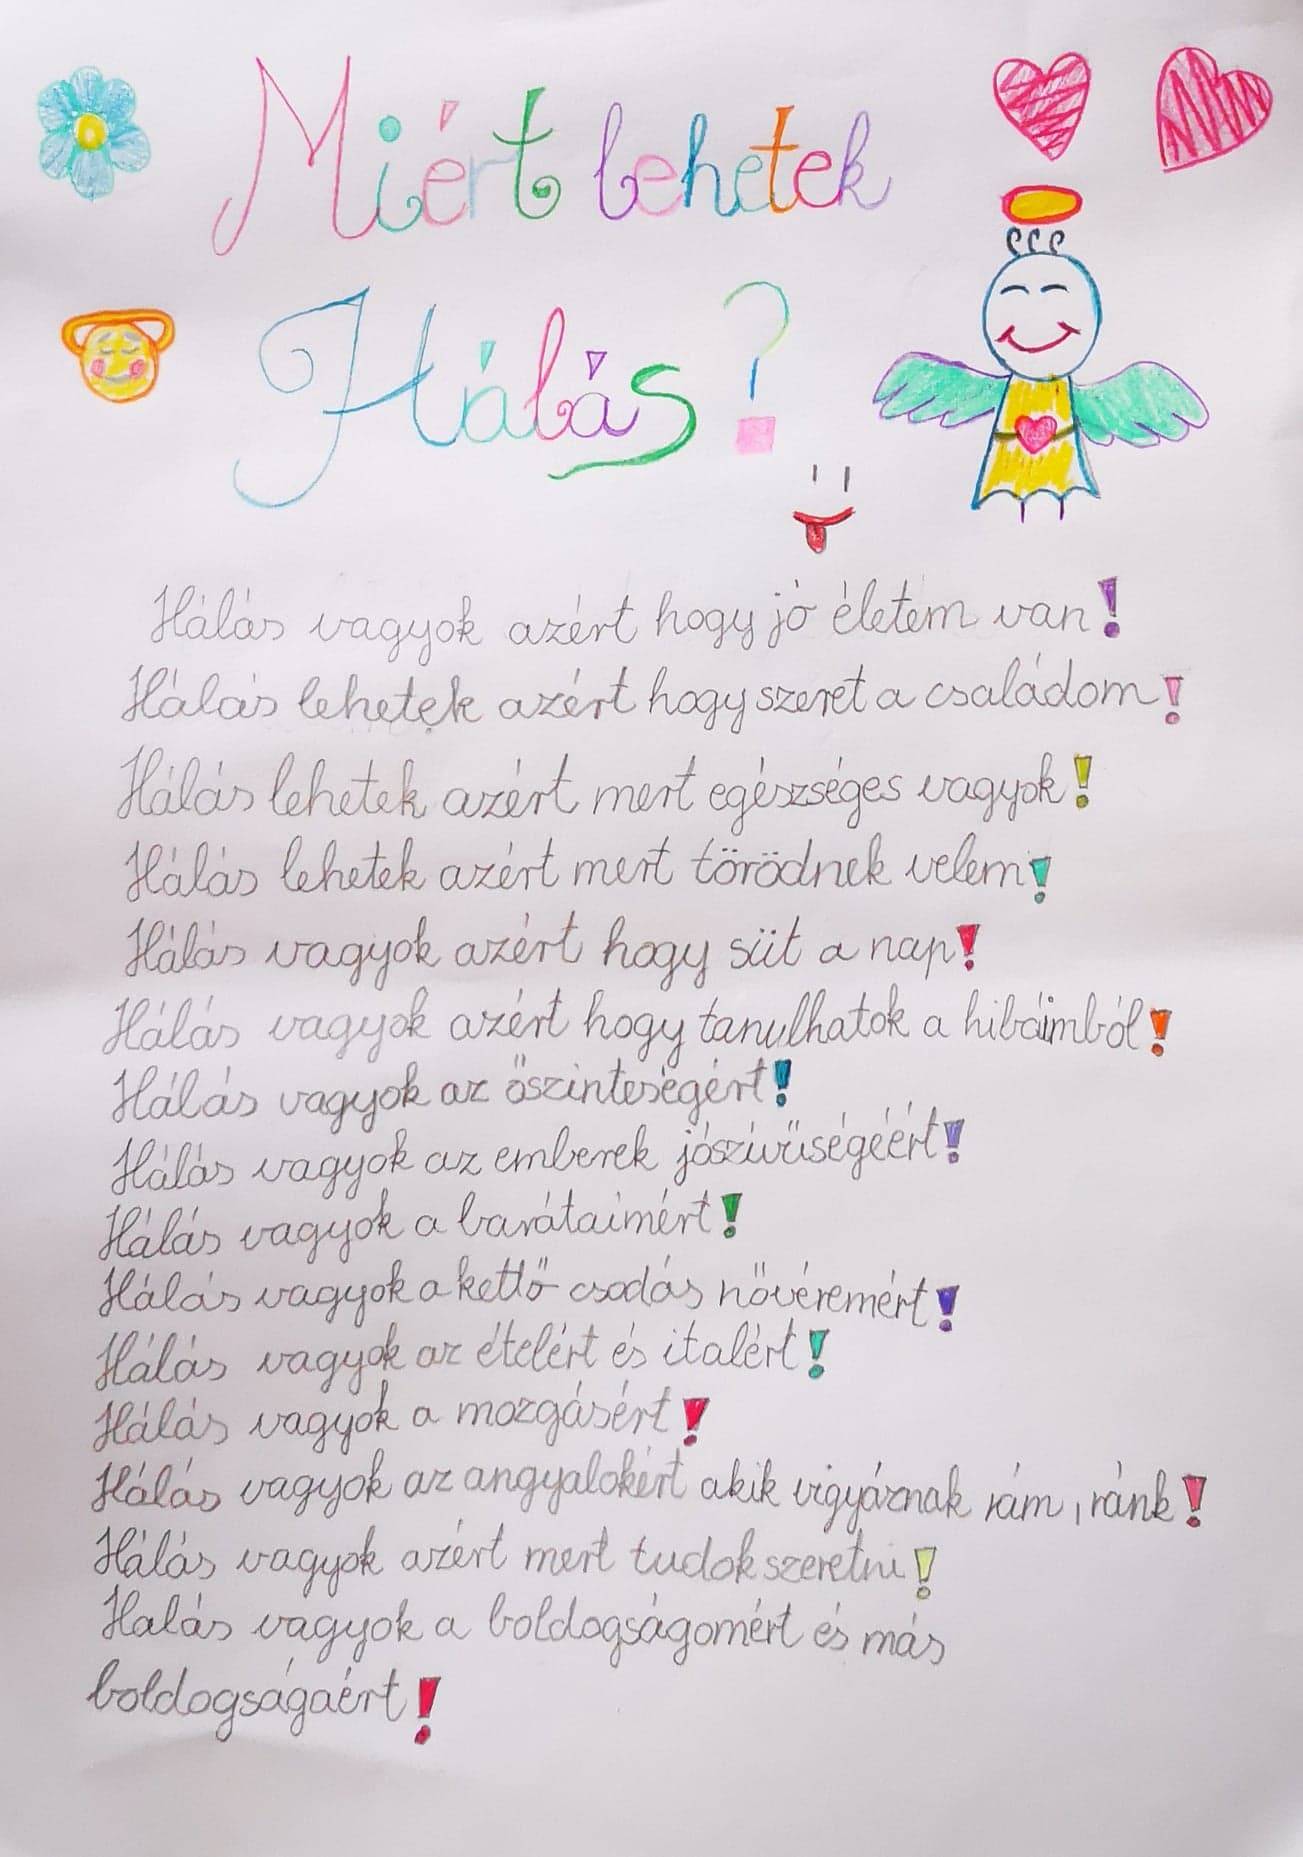 Miért lehetek
Hálás?
Hálás vagyok azért hogy jó életem van!
Hálás lehetek azért hogy szeret a családom!
Hálás lehetek azért mert egészséges vagyok!
Hálás lehetek azért mert törödnek velem!
Hálás vagyok azért hogy süt a nap!
Hálás vagyok azért hogy tanulhatok a hibáimból!
Hálás vagyok az őszinteségért!
Hálás vagyok az emberek jószívűségéért!
Hálás vagyok a barátaimért!
Hálás vagyok a kettő csodás nővéremért!
Hálás vagyok az ételért és italért!
Hálás vagyok a mozgásért!
Hálás vagyok az angyalokért akik vigyáznak rám, ránk!
Hálás vagyok azért mert tudok szeretni!
Halás vagyok a boldogságomért és más
boldogságaért!